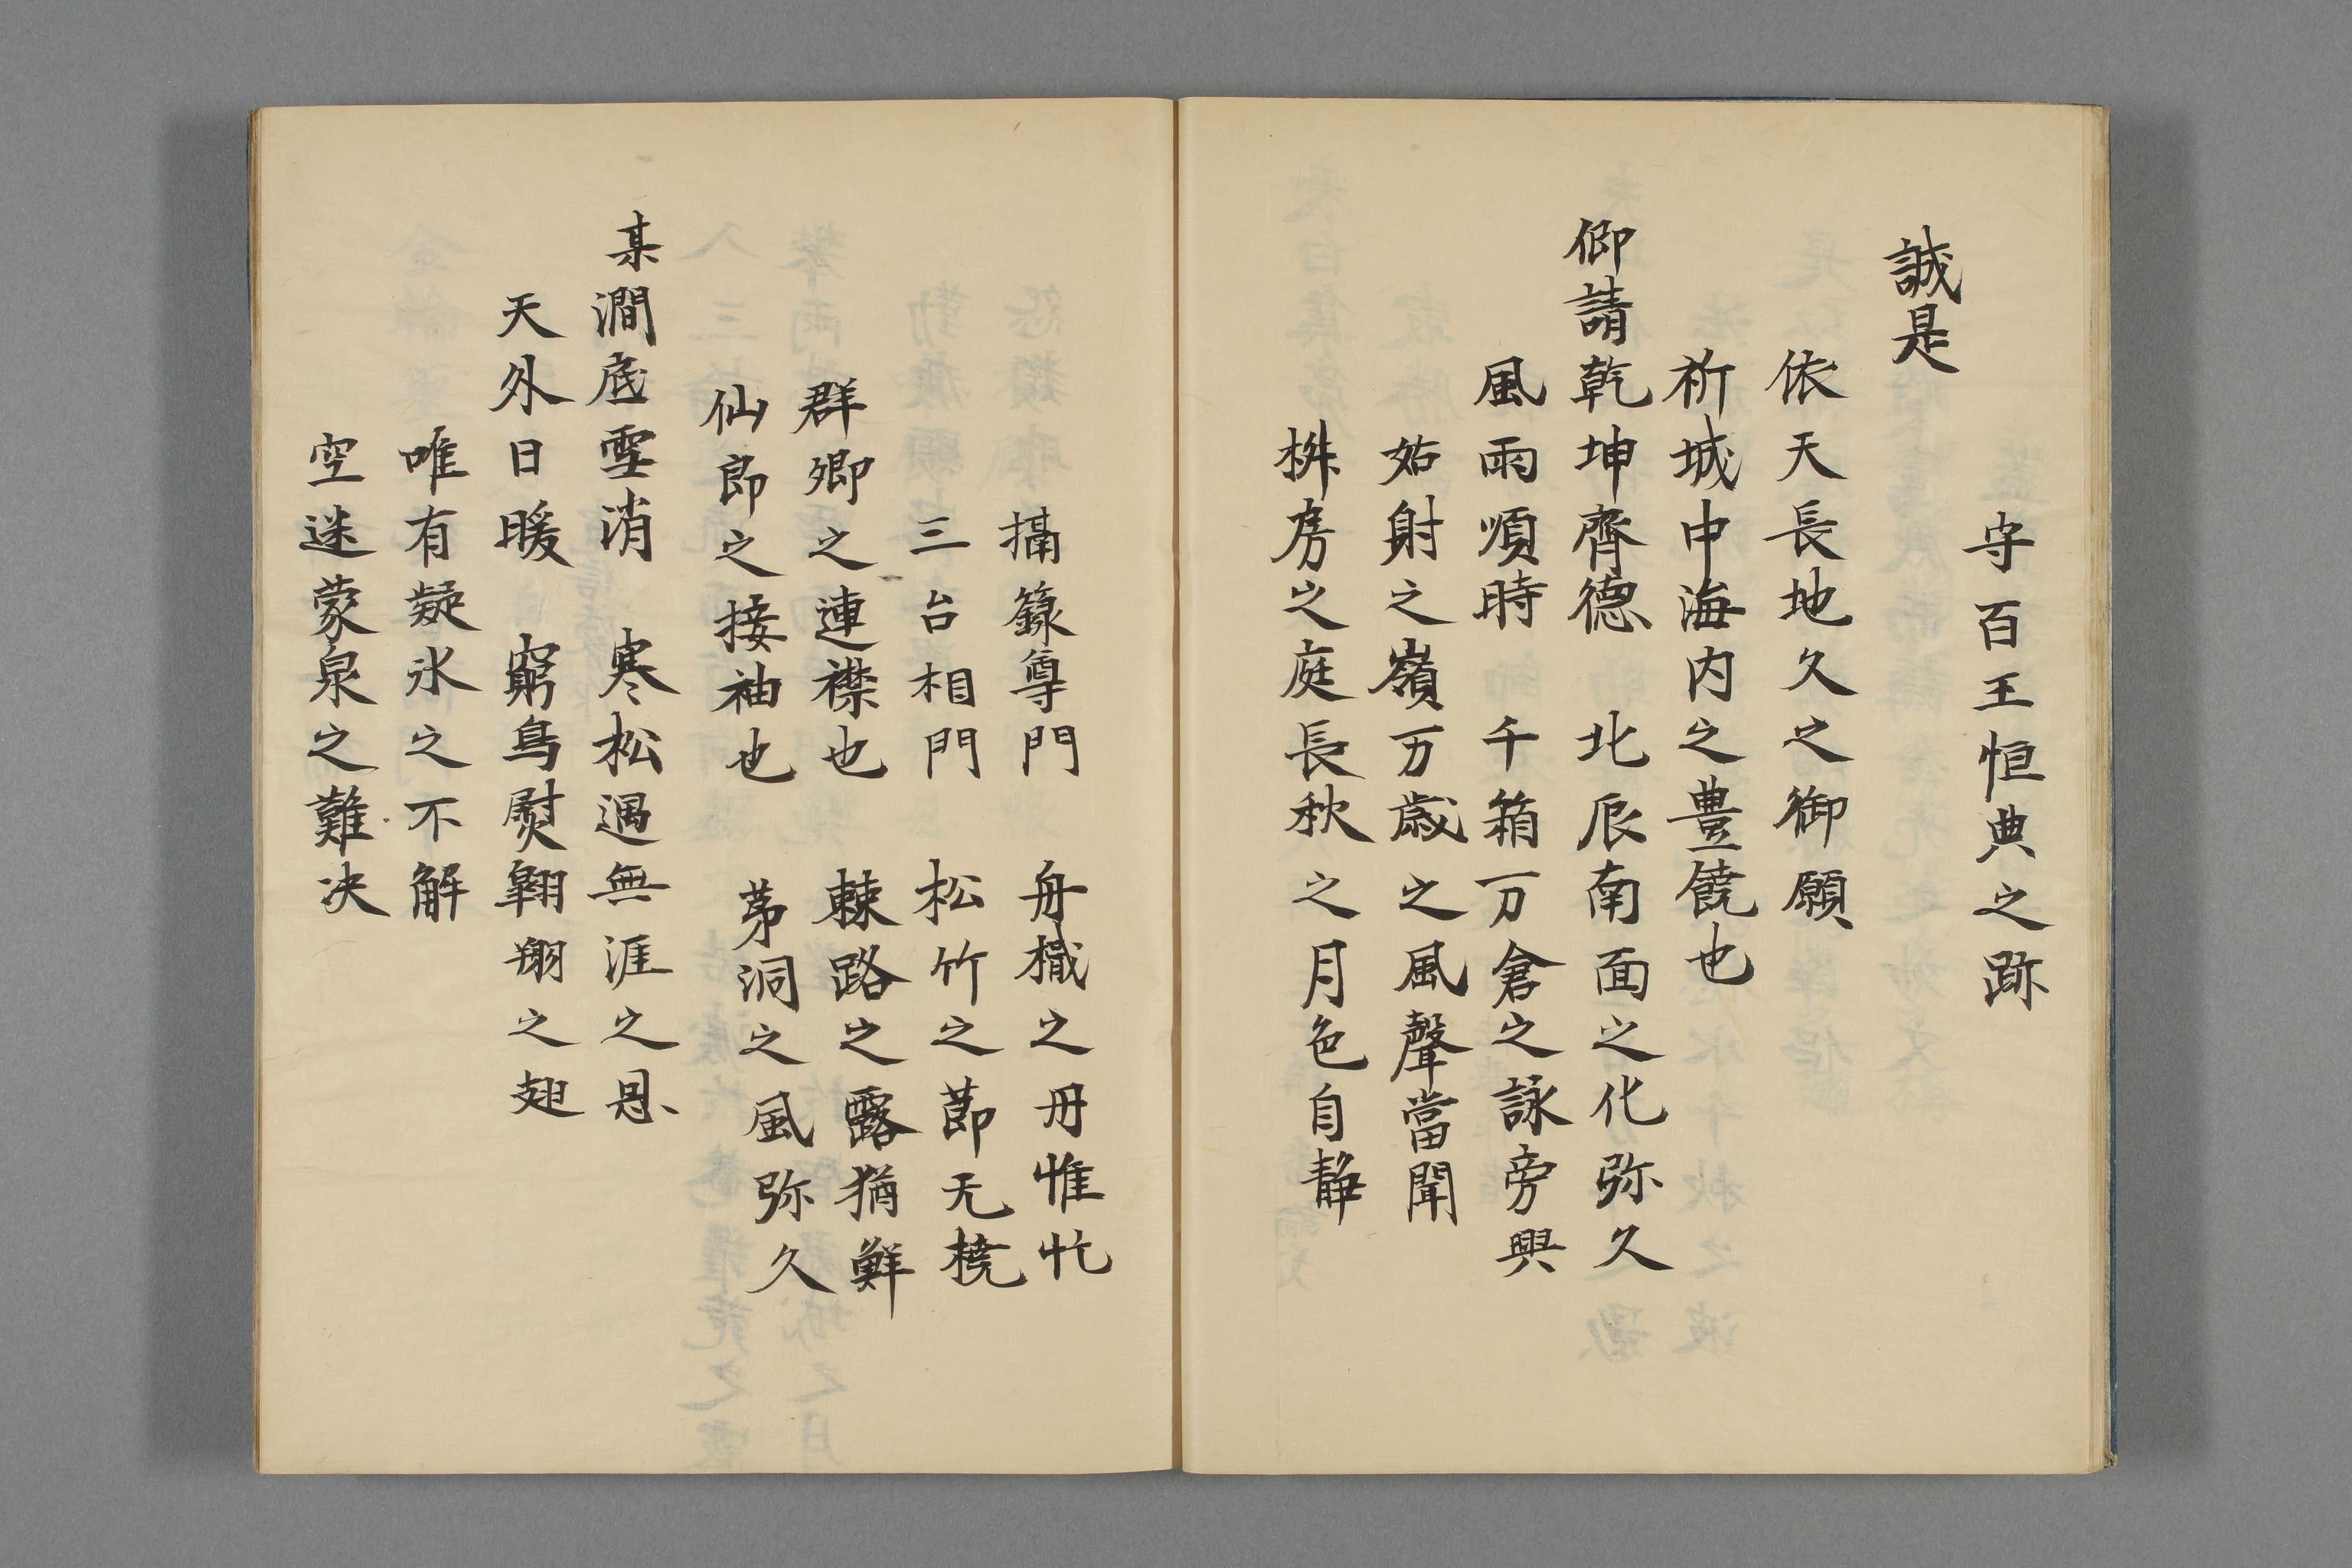 守百王恒典之跡
誠是
依天長地久之御願
祈城中海内之豊饒也
仰請乾坤齊德 北辰南面之化弥久
風雨順時 千箱万倉之詠旁興
姑射之嶺万歳之風聲當聞
椒房之庭長秋之月色自静
攝籙尊門 舟檝之丹惟忙
三台相門 松竹之莭无橈
群卿之連襟也 棘路之露猶鮮
仙郎之接袖也 茅洞之風弥久
某澗底雪消 寒松遇無涯之恩
天外日暖 窮鳥熨翱翔之翅
唯有疑氷之不解
空迷蒙泉之難决